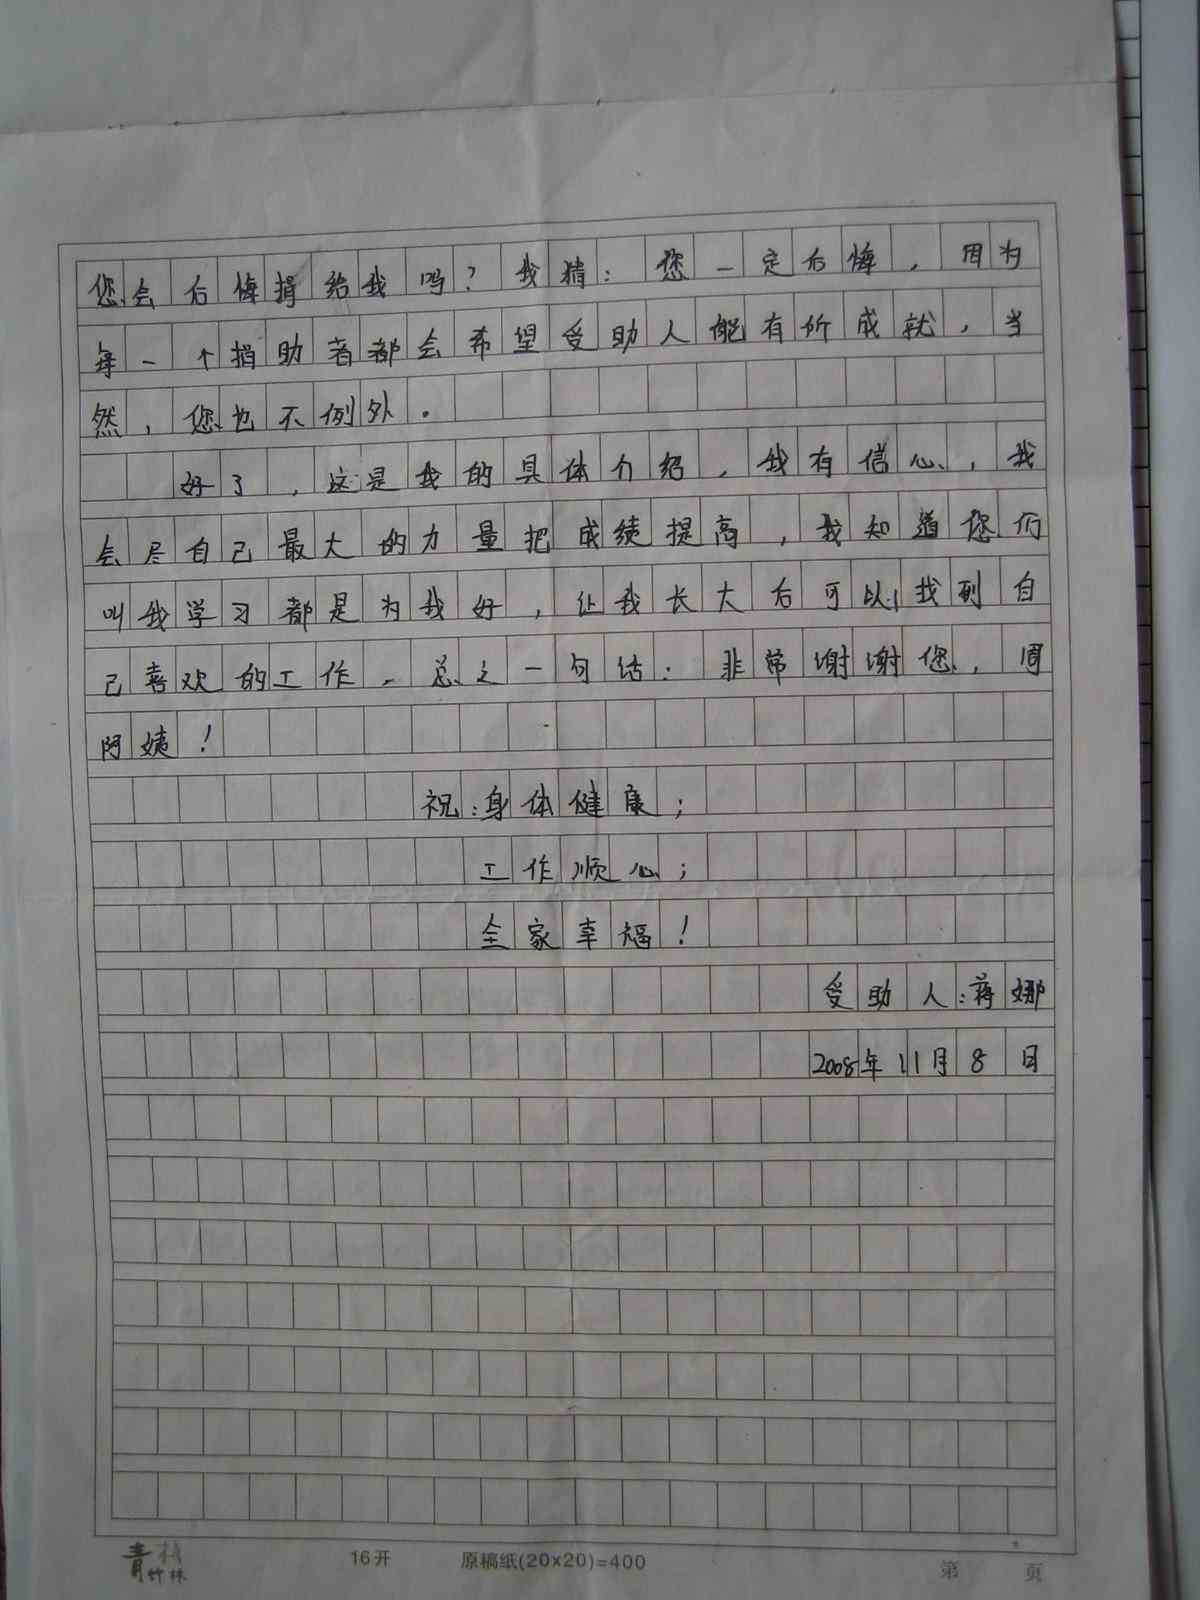 您会后悔捐给我吗？我猜：您一定后悔，因为
每一个捐助者都会希望受助人能有所成就，当
然，您也不例外。
好了，这是我的具体介绍，我有信心，我
会尽自己最大的力量把成绩提高，我知道您们
叫我学习都是为我好，让我长大后可以找到自
己喜欢的工作，总之一句话：非常谢谢您，周
阿姨！
祝：身体健康；
工作顺心；
全家幸福！
受助人：蒋娜
2008年11月8日
青竹林
16开 原稿纸(20×20)=400 第 页